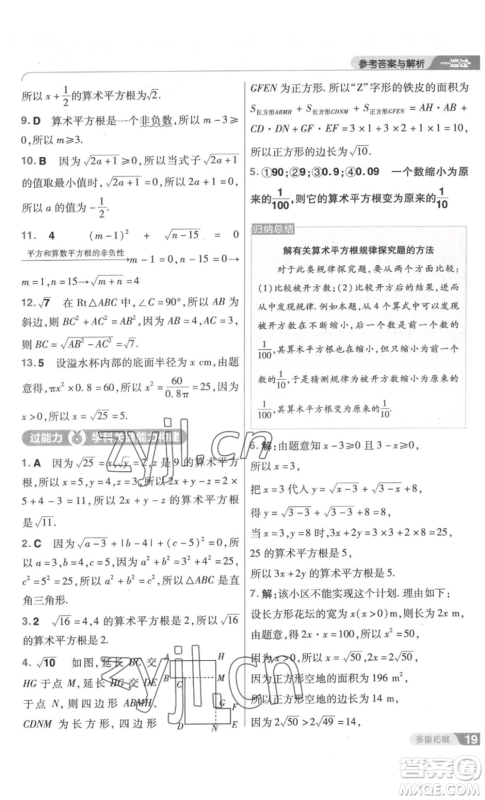 参考答案与解析 一遍过
所以 x+1/2 的算术平方根为√2.
9. D 算术平方根是一个非负数, 所以 m-3≥0,
所以 m≥3.
10. B 因为 √(2a+1)≥0, 所以当式子 √(2a+1)
的值取最小值时, √(2a+1)=0, 所以 2a+1=
0, 所以 a 的值为 -1/2.
11. 4 (m-1)²+√(n-15)=0
平方和算术平方根的非负性→m=1, n=15→m+n=
16→√(m+n)=4.
12. √7 在 Rt△ABC 中, ∠C=90°, 所以 AB 为
斜边, 则 BC²=AB²-AC²=7, 所以 BC=√7.
13. 5 设溢水杯内部的底面半径为 x cm, 根据
题意得, πx²×0.8=60, 所以 x²=60/0.8π=25. 因
为 x>0, 所以 x=√25=5.
过能力 学科关键能力构建
1. A 因为√25=x, √y=2, z 是 9 的算术平方
根, 所以 x=5, y=4, z=3, 所以 2x+y-z=
2×5+4-3=11, 所以 2x+y-z 的算术平方根
是√11.
2. C 因为 √(a-3)+|b-4|+(c-5)²=0, 所以
a=3, b=4, c=5, 所以 a²+b²=3²+4²=
25=5², 所以 a²+b²=c², 所以△ABC 是直
角三角形.
3. 2 √16=4, 4 的算术平方根是 2.
4. √10 如图, 延长 BC 交
HG 于点 M, 延长 DC 交
HE 于点 N, 则四边形 ABMH,
CDNM 为长方形, 四边形
A B H D C M N G F E
GFEN 为正方形. 所以“Z”字形的铁皮的面积为
S长方形ABMH+S长方形CDNM+S正方形GFEN=AH·AB+
CD·DN+GF·EF=10.
所以正方形的边长为√10.
5. ①90;②30;③0.9;④0.09 一个数缩小为原
来的1/100, 则它的算术平方根变为原来的1/10
归纳总结
解有关算术平方根规律探究题的方法
对于此类规律探究题, 可从两个方面比较:
(1)比较被开方数的变化规律;(2)比较开方后
的结果的变化规律, 然后再结合数值变化情况,
从中发现规律. 例如本题, 从 4 个算式中可以
发现, 后一个的被开方数缩小为前一个数的
1/100, 其算术平方根的结果也缩小为前一个数的
1/10, 于是猜测规律为被开方数缩小为原来的
1/100, 其算术平方根变为原来的1/10.
6. 解:由题意知 x-3≥0 且 3-x≥0,
所以 x=3.
把 x=3 代入 y=√(x-3)+√(3-x)+8,
得 y=√(3-3)+√(3-3)+8=8,
当 x=3, y=8 时, 3x+2y=3×3+2×8=25,
25 的算术平方根是 5,
所以 3x+2y 的算术平方根是 5.
7. 解:该小区不能实现这个计划. 理由如下:
设长方形花坛的宽为 x(x>0) m, 则长为 2x m.
根据题意, 得 2x·x=100,
所以 x²=50.
因为 x>0, 所以 x=√50, 2x=2√50.
因为正方形空地的面积为 196 m²,
所以正方形空地的边长为 14 m.
因为 2√50>2√49, 所以 2√50>14,
多重拓展 19
zyjl.cn
作业精灵